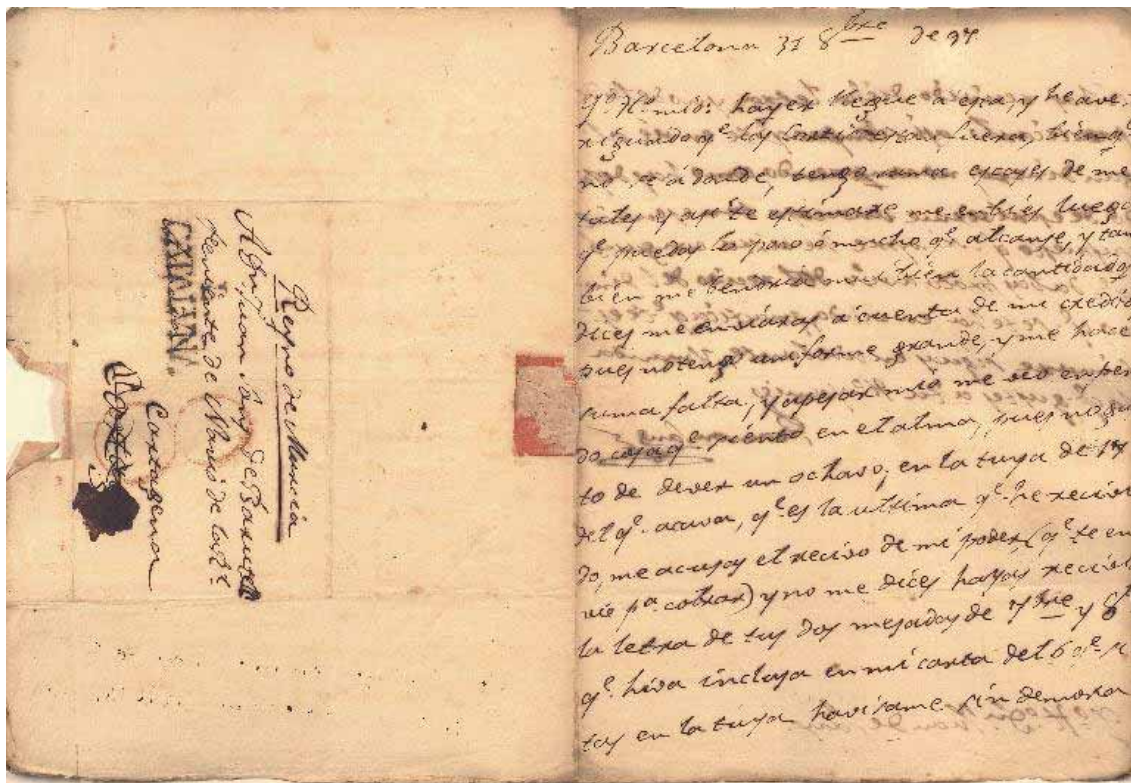 Reyno de Murcia
A Dn. Juan de
Teniente de Navio de la Rl.
Cartagena
CATALUÑA
Barcelona 31 8bre de 97
mio: hayer llegue a esa, y he ave,
riguado qe. los estan fuera, bien qe.
no se a donde, tengo suma escases de me
tales y asi te estimare me embies luego
qe. puedas lo poco ó mucho qe. alcanse, y tam
bien me bendria muy bien la cantidad q
dices me embiaras á cuenta de mi credito
pues no tengo uniforme grande, y me hace
suma falta, y apesar mio me veo empeña
do cosa q siento en el alma, pues no gus
to de dever un ochavo; en la tuya de 17
del qe. acava, qe. es la ultima qe. he recivi
do, me acusas el recivo de mi poder (qe. te en
vie pa. cobrar) y no me dices hayas recivi
la letra de tus dos mesadas de 7bre y 8
qe. hiva inclusa en mi carta del 6 qe.
tas en la tuya havisame sin demora